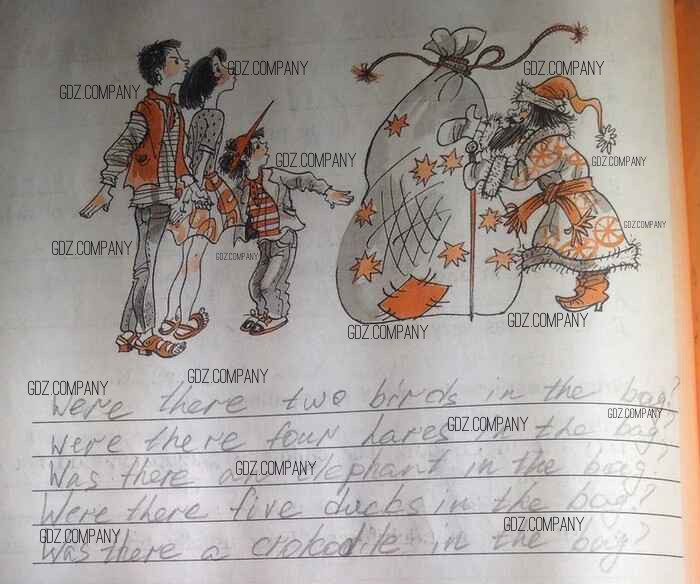 GDZ.COMPANY
GDZ.COMPANY
GDZ.COMPANY
GDZ.COMPANY
GDZ.COMPANY
GDZ.COMPANY
GDZ.COMPANY
GDZ.COMPANY
GDZ.COMPANY
GDZ.COMPANY
GDZ.COMPANY
GDZ.COMPANY
Were there two birds in the bag?
GDZ.COMPANY
GDZ.COMPANY
Were there four hares in the bag?
GDZ.COMPANY
Was there an elephant in the bag?
Were there five ducks in the bag?
GDZ.COMPANY
GDZ.COMPANY
Was there a crokodile in the bag?